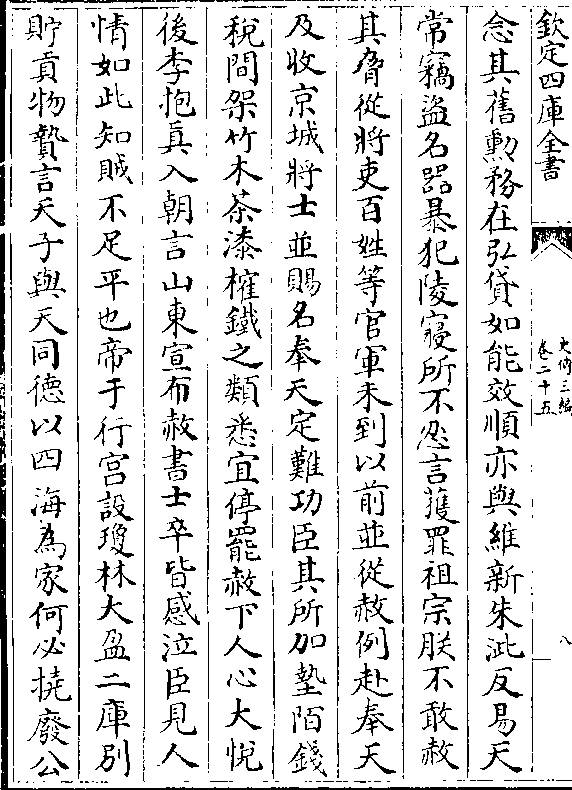 欽定四庫全書
史傳三編
卷二十五
八
念其舊勲務在弘貸如能效順亦與維新朱泚反易天
常竊盜名器暴犯陵寢所不忍言獲罪祖宗朕不敢赦
其脅從將吏百姓等官軍未到以前並從赦例赴奉天
及收京城將士並賜名奉天定難功臣其所加墊陌錢
稅間架竹木茶漆榷鐵之類悉宜停罷赦下人心大悅
後李抱真入朝言山東宣布赦書士卒皆感泣臣見人
情如此知賊不足平也帝于行宫設瓊林大盈二庫別
貯貢物贄言天子與天同德以四海為家何必撓廢公